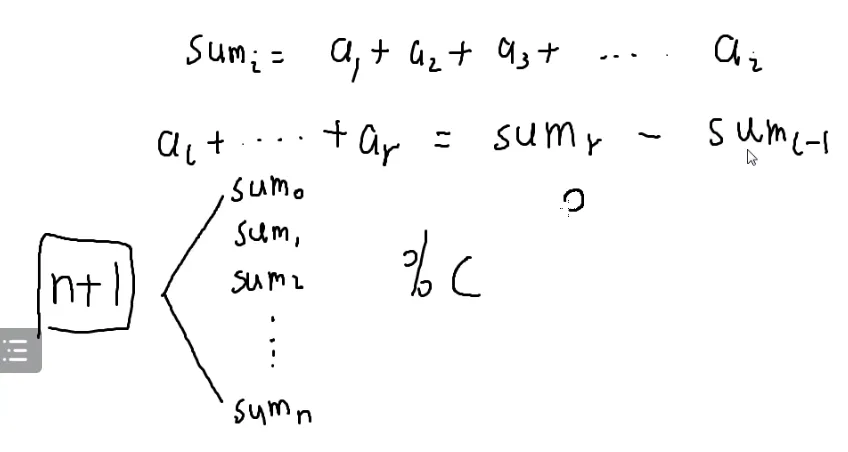 sum_i = a_1 + a_2 + a_3 + .... a_i
a_l + .... + a_r = sum_r - sum_{l-1}
sum_0
0
sum_1
n+1
sum_2
% C
⋮
sum_n